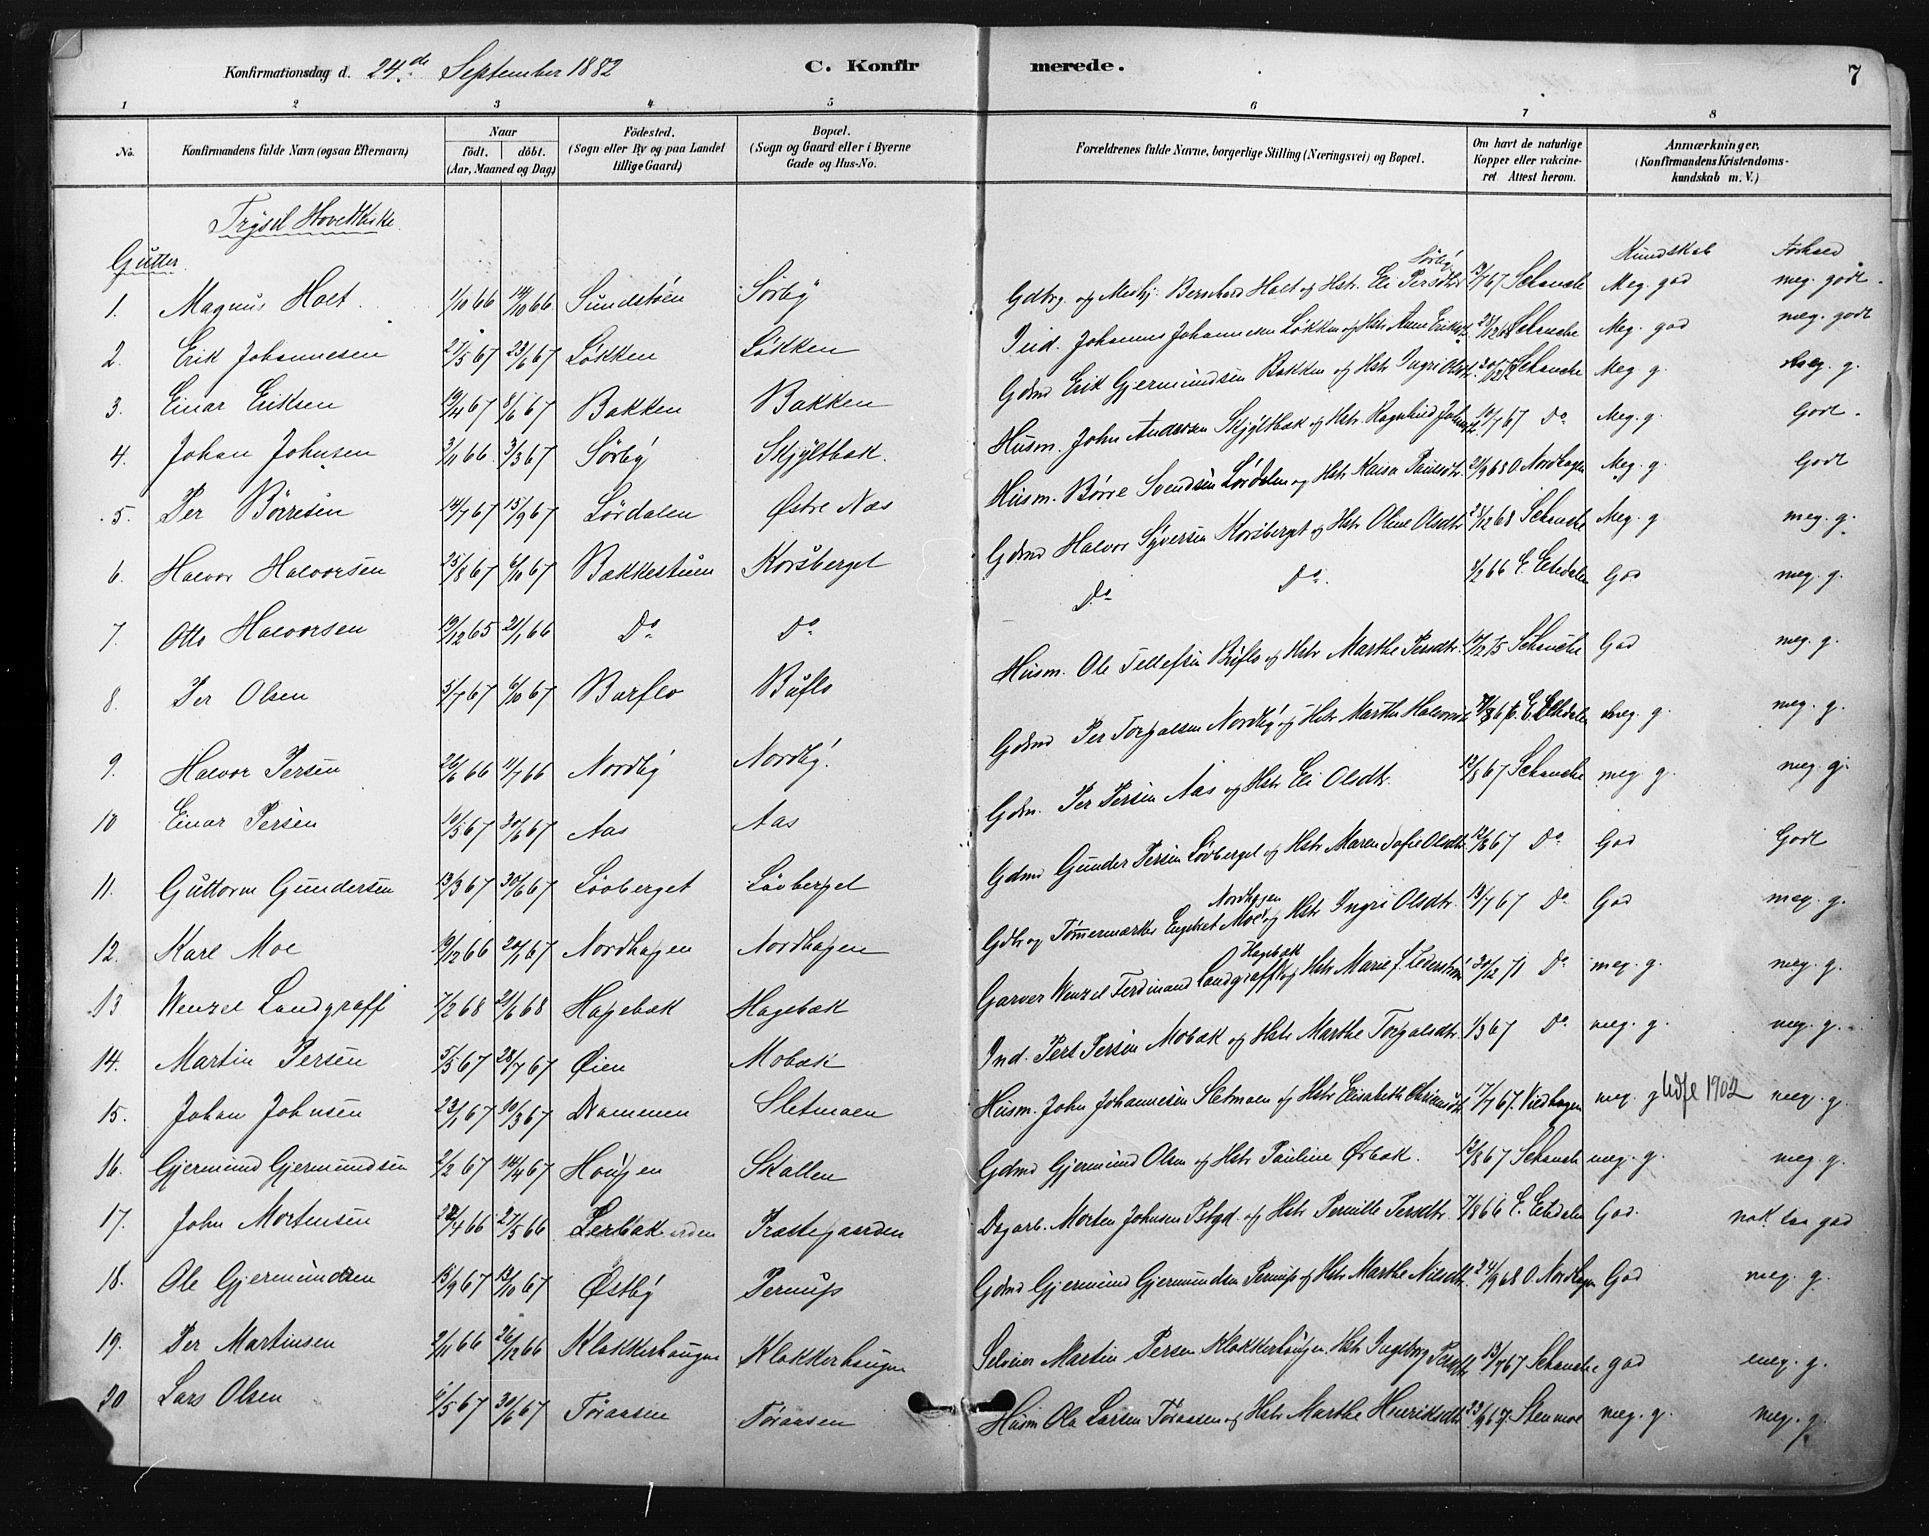 Konfirmationsdag d. 24.de September 1882 C. Konfirmerede. 7
1 2 3 4 5 6 7 8
No. Konfirmandens fulde Navn (ogsaa Efternavn) Naar födt. döbt. (Aar, Maaned og Dag) Födested. (Sogn eller By og paa Landet tillige Gaard) Bopæl. (Sogn og Gaard eller i Byerne Gade og Hus-No. Forældrenes fulde Navne, borgerlige Stilling (Næringsvei) og Bopæl. Om havt de naturlige Kopper eller vakcineret Attest herom. Anmærkninger, (Konfirmandens Kristendomskundskab m. V.)
Trysil Hovedkirke.
Gutter. Kundskab Forhold
1. Magnus Holt. 1/10 66 14/10 66 Sundstöen Sörby Gdbrg. og Meskj. Bernhard Holt og Hstr. Eli Persdtr. Sörby 67 Schanche Meg. god meg. godt.
2. Erik Johannesen 2/5 67 23/6 67 Løkken Løkken Ind. Johannes Johannesen Løkken og Hstr Anne Eriksd. Schanche Meg. god meg. godt
3. Einar Eriksen 19/4 67 8/6 67 Bakken Bakken Gdmd Erik Gjermundsen Bakken og Hstr. Ingri Olsd. Schanche Meg. g. meg. g.
4. Johan Johnsen 3/11 66 3/3 67 Sörby Skjyltbak. Husm. John Andersen Skjyltbak og Hstr. Ragnhild 10/7 67 Do Meg. g. Godt.
5. Per Börresen 14/7 67 15/9 67 Lördalen Østre Nas Husm. Börre Svendsen Lördalen og Hstr Kaisa Paulsdtr. 21/9 68 O. Nordhagen Meg. g. Godt
6. Halvor Halvorsen 25/8 67 6/10 67 Bakkestuen Korsberget Gdmd Halvor Syversen Korsberget og Hstr Oline Olsdtr. 2/12 68 Schanche Meg. g meg. g.
7. Otto Halvorsen 19/12 65 21/1 66 Do Do Do Do. 4/2 66 E. Etedalen God meg. g.
8. Per Olsen 5/7 67 6/10 67 Burflo Buflo Husm. Ole Tellefsen Buflo og Hstr Marthe Persdtr. 17/12 75 Schanche God meg. g.
9. Halvor Persen 26/6 66 11/7 66 Nordby Nordby. Gdmd Per Torgalsen Nordby og Hstr Marthe Halvorsd. E. Etedalen meg. g. meg. g.
10 Einar Persen 10/5 67 30/6 67 Aas Aas Gdm. Per Persen Aas og Hstr Eli Olsdtr. 12/8 67 Schanche meg. g. meg. g.
11. Guttorm Gundersen 13/3 67 30/6 67 Løvberget Løvberget Gdmd Gunder Persen Løvberget og Hstr Maren Sofie Olsdtr. 12/8 67 Do God Godt
12. Karl Moe 19/12 66 20/1 67 Nordhagen Nordhagen Gdbr og Tømmermærker Engebret Moe Nordhagen og Hstr Ingri Olsdtr. 13/7 67 Do God meg. g.
13 Wenzel Landgraff 7/2 68 21/6 68 Hagebak Hagebak Garver Wenzel Ferdinand Landgraff Hagebak og Hstr Marie J. Cederström 30/12 71 Do meg. g. meg. g.
14. Martin Persen 5/5 67 28/7 67 Øien Mobak Ind. Pers Persen Mobak og Hstr Marthe Torgalsdtr. 1/3 67 Do meg. g. meg. g.
15. Johan Johnsen 23/1 67 10/3 67 Drammen Sletmoen Husm. John Johannesen Sletmoen og Hstr Elisabeth 17/7 67. Viedhagen meg. g Udfl 1902 meg. g.
16. Gjermund Gjermundsen 2/2 67 14/4 67 Haugen Skallen Gdmd Gjermund Olsen og Hstr Pauline Ørbak. 12/8 67 Schanche meg. g. meg. g.
17. John Mortensen 22/4 66 27/5 66 Lerbak Prastegaarden Dagarb. Morten Johnsen Pstgd. og Hstr Pernille Persdtr. 7/8 66 E. Etedalen God. nok saa god
18. Ole Gjermundsen 15/9 67 13/10 67 Østby Pernups Gdmd Gjermund Gjermundsen Pernups og Hstr Marthe Nilsdtr. 24/9 68 O. Nordhagen God meg. g.
19. Per Martinsen 2/11 66 26/12 66 Klokkerhaugen Klokkerhaugen Selveier Martin Persen Klokkerhaugen. Hstr Ingeborg Persdtr 13/7 67 Schanche god meg. g.
20 Lars Olsen 1/5 67 30/6 67 Töraasen Töraasen Husm Ola Larsen Töraasen og Hstr Marthe Henriksdtr. 23/9 67. Stenmoe meg. g. meg. g.